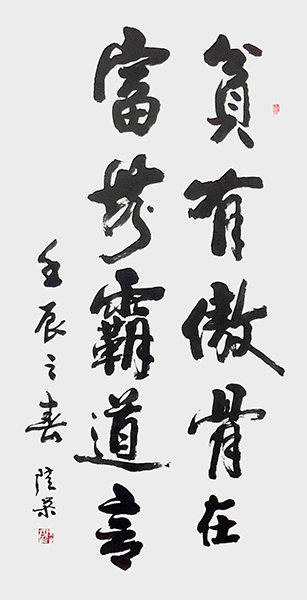 貧有傲骨在
富無霸道言
壬辰之春 陸